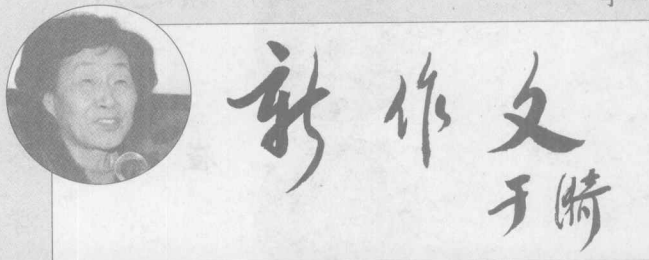 新作文
于漪